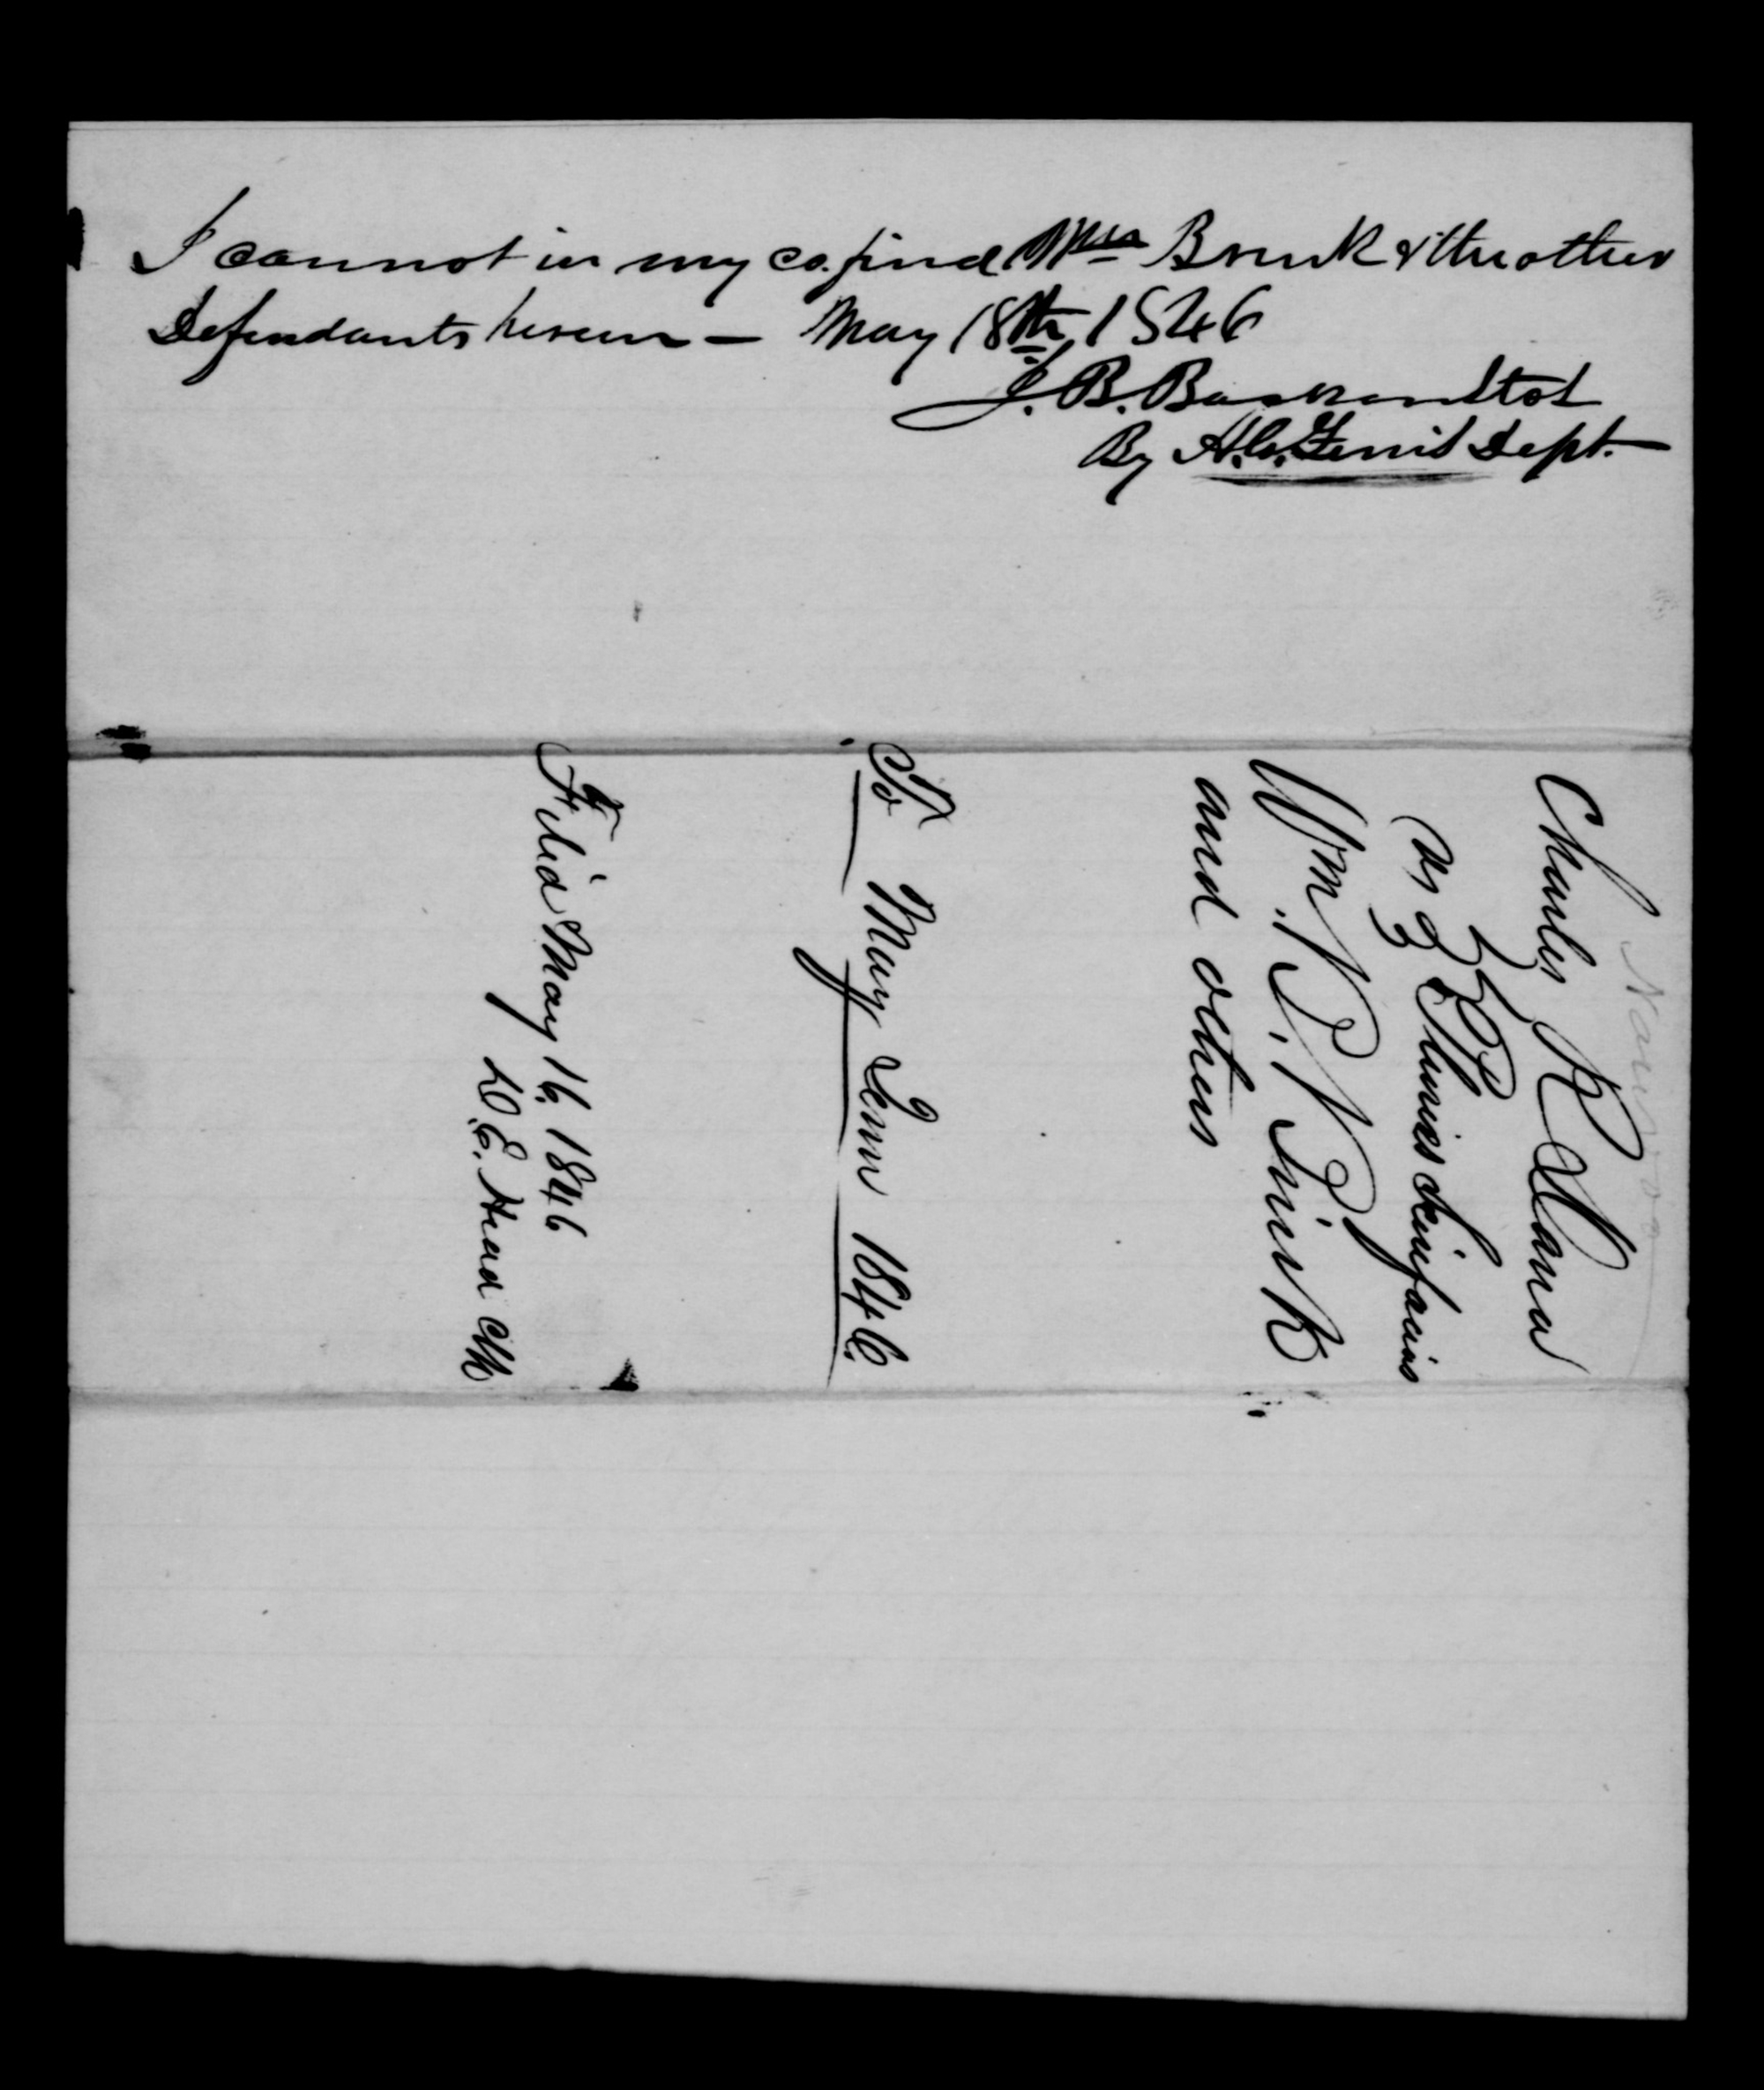 I cannot in my co. find Mrs Brink & the other
Defendants herein — May 18th 1846
J. B. Backenstos
By H. G. Ferris Dept.
Nauvoo
Charles R Dana
vs } Pluries Scirefacias
Wm. B. Brink
and others
To May Term 1846.
Filed May 16 1846
D. E. Head Clk